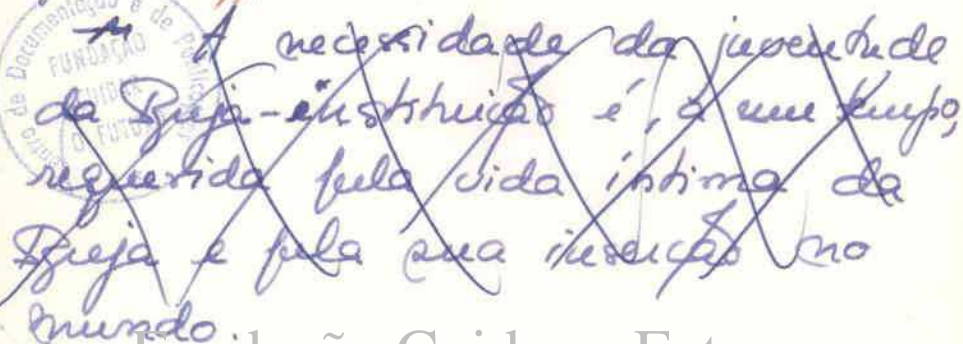 A necessidade da juventude
da Igreja-instituição é, a um tempo,
requerida pela vida íntima da
Igreja e pela sua inserção no
mundo.
Centro de Documentação e de Publicações
FUNDAÇÃO
CUIDAR
O FUTURO
Fundação Cuidar o Futuro